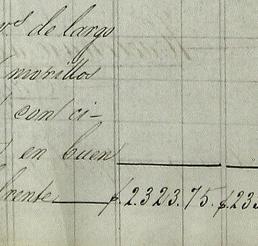 vs de largo
morillos
con ci-
en buen
frente $2.323.75. $233